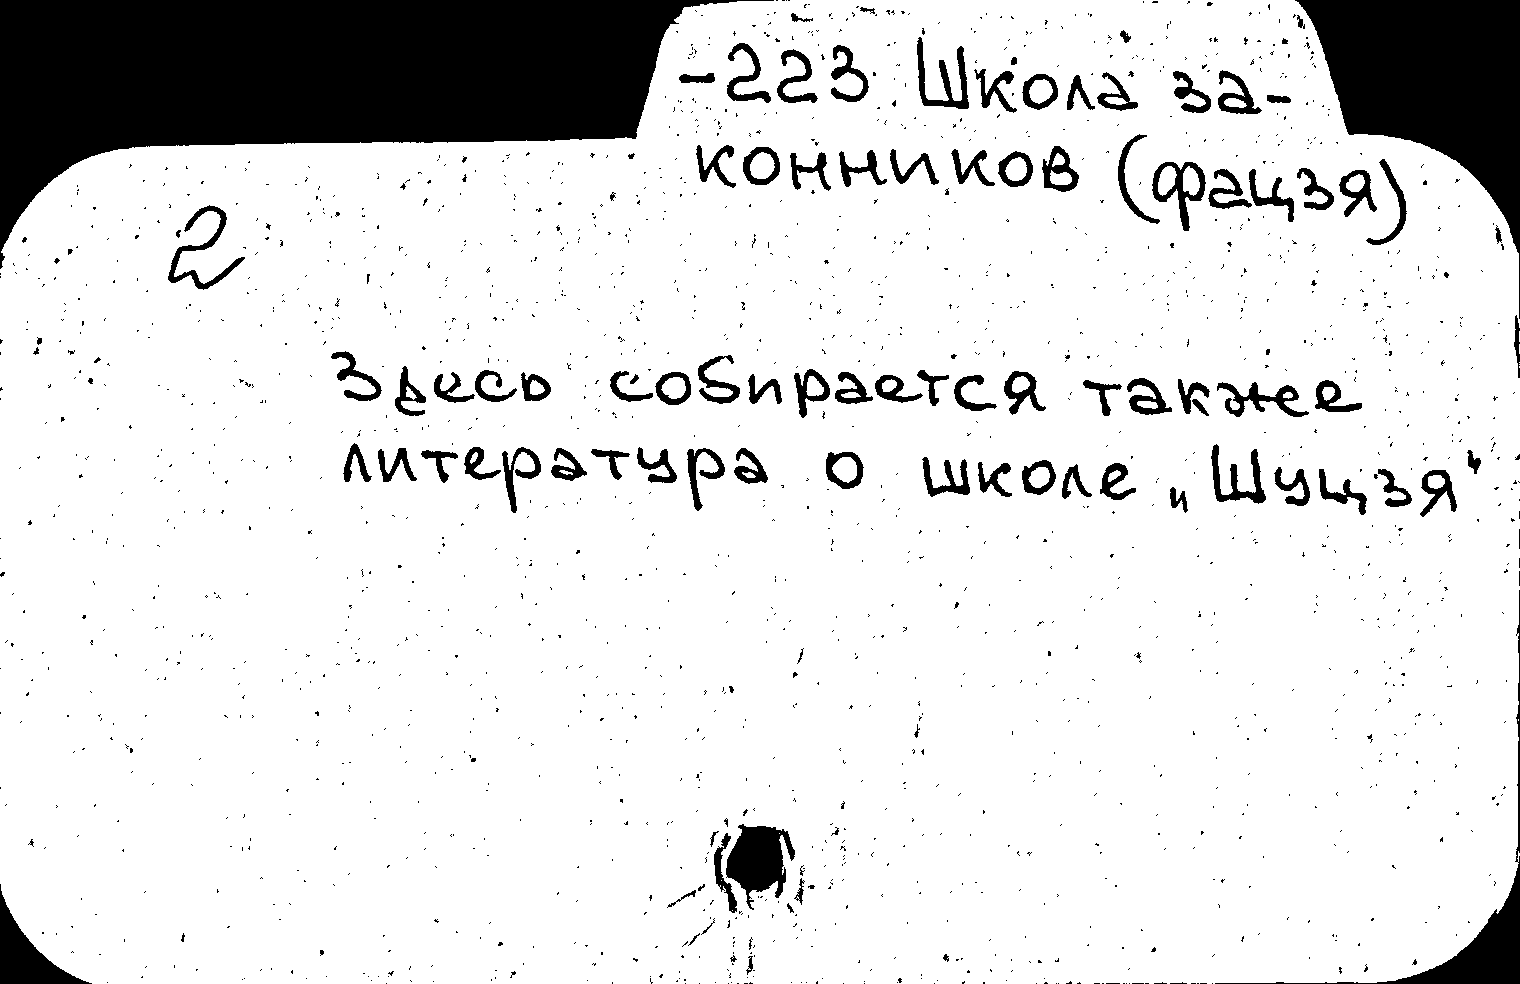 -223 Школа за-
конников (фацзя)
2
Здесь собирается также
литература о школе „Шуцзя“